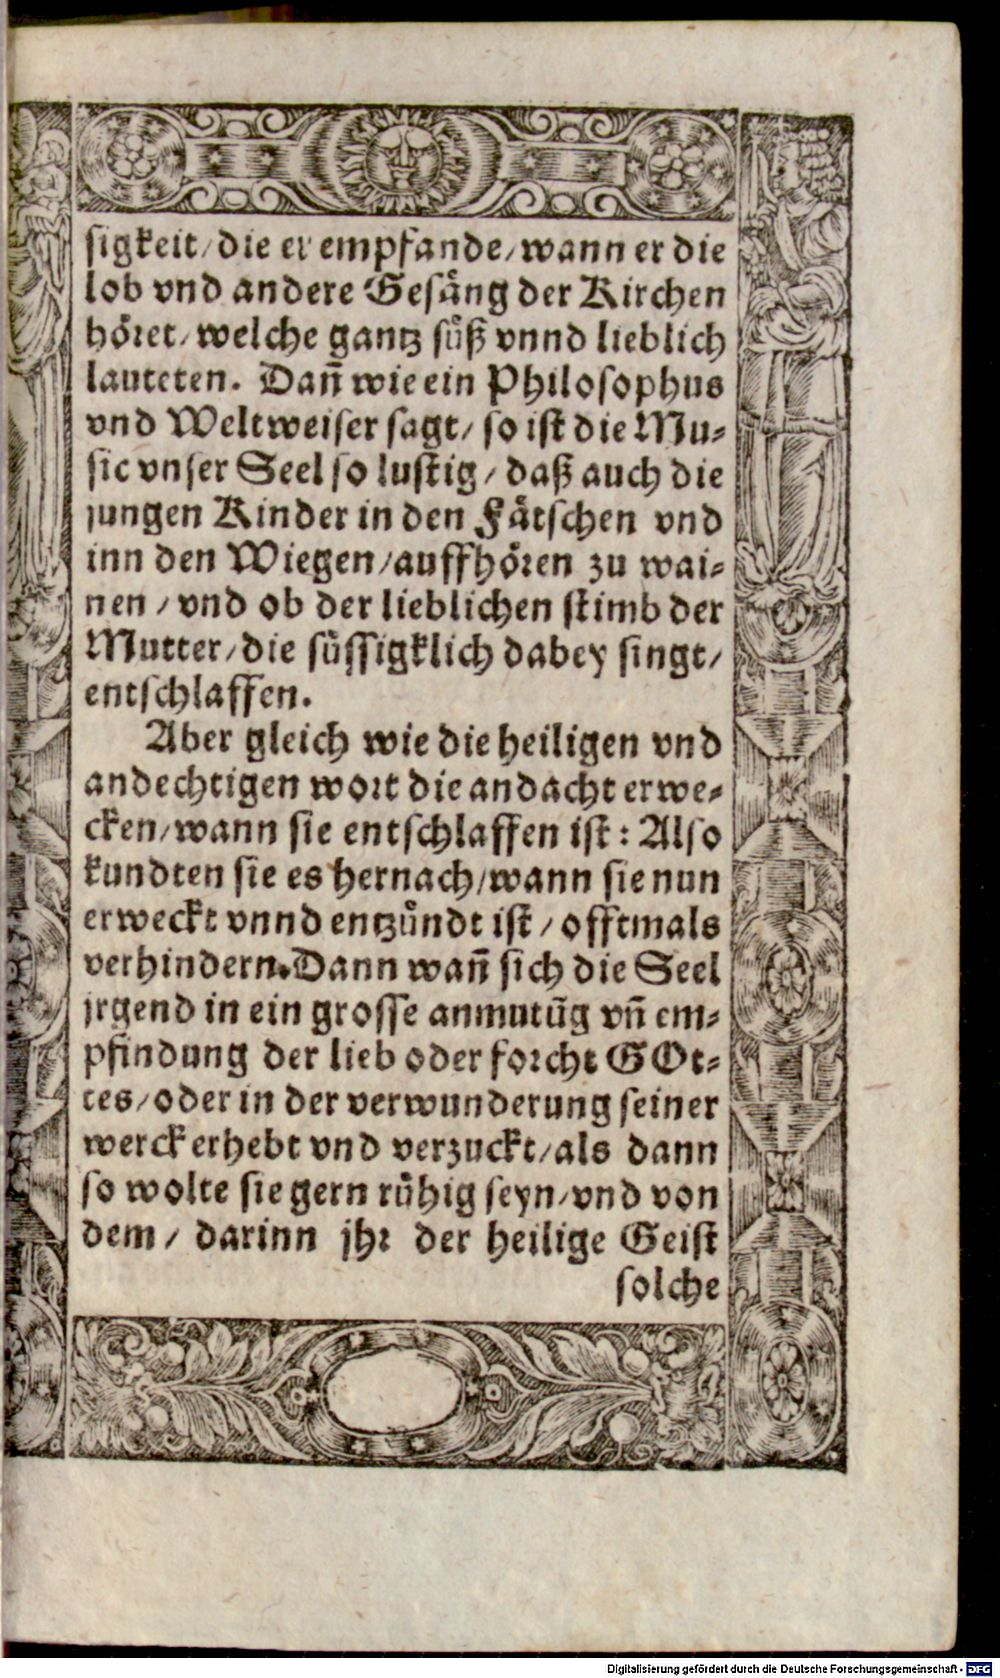 sigkeit/ die er empfande/ wann er die
lob vnd andere Gesäng der Kirchen
höret/ welche gantz süß vnnd lieblich
lauteten. Dañ wie ein Philosophus
vnd Weltweiser sagt/ so ist die Mu-
sic vnser Seel so lustig/ daß auch die
jungen Kinder in den Fätschen vnd
inn den Wiegen/ auffhören zu wai-
nen/ vnd ob der lieblichen stimb der
Mutter/ die süssigklich dabey singt/
entschlaffen.
Aber gleich wie die heiligen vnd
andechtigen wort die andacht erwe-
cken/ wann sie entschlaffen ist: Also
kundten sie es hernach/ wann sie nun
erweckt vnnd entzündt ist/ offtmals
verhindern. Dann wañ sich die Seel
jrgend in ein grosse anmutũg vñ em-
pfindung der lieb oder forcht GOt-
tes/ oder in der verwunderung seiner
werck erhebt vnd verzuckt/ als dann
so wolte sie gern rühig seyn/ vnd von
dem/ darinn jhr der heilige Geist
solche
Digitalisierung gefördert durch die Deutsche Forschungsgemeinschaft - DFG